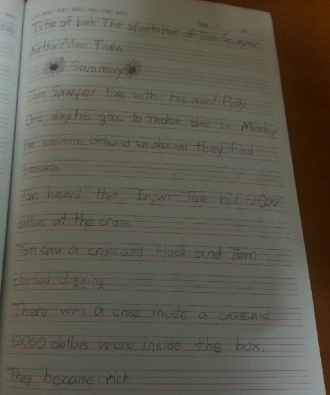 Title of book The adventures of Tom Sawyer
Author: Marc Twain
Summary
Tom Sawyer live with his aunt Polly
One day he goes to
he swimms and smokes and they find
treasures
Tom heard that Enjun Joe hid 12000
dollars at the cross
Tom saw a cross and Huck and Tom
started digging.
There was a cross inside a cave and
12000 dollars were inside the box.
They became rich